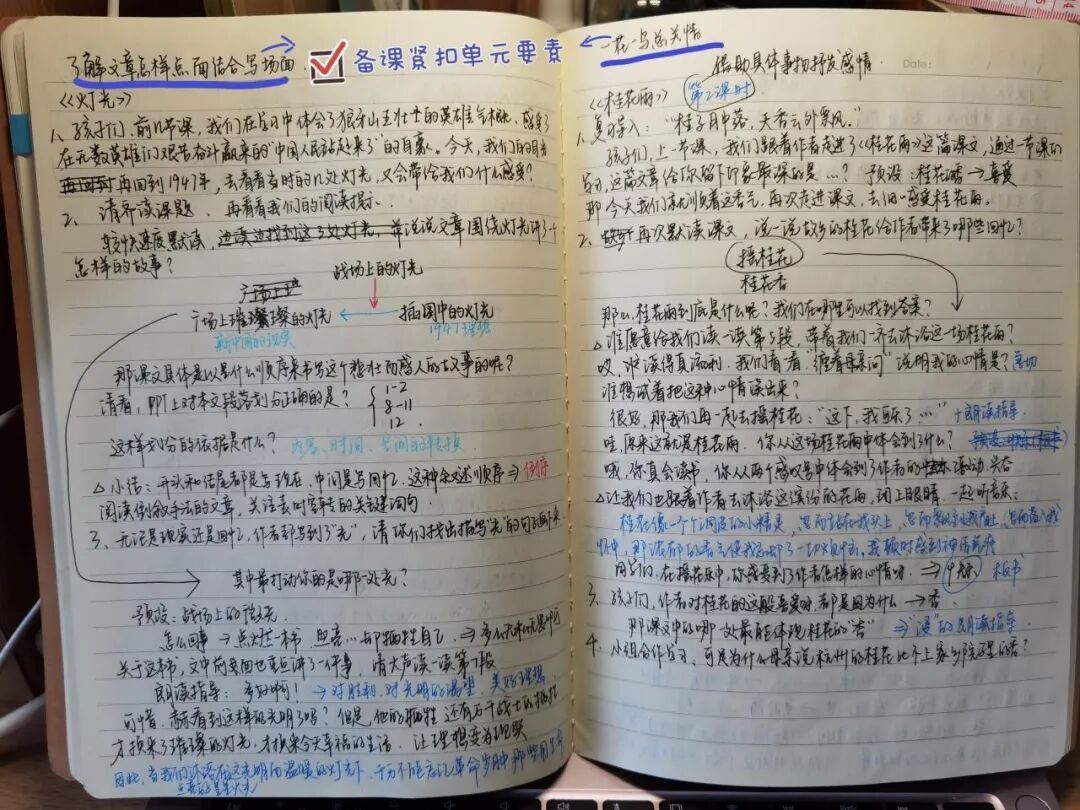 了解文章怎样点面结合写场面
备课紧扣单元要素
《灯光》
1、孩子们，前几节课，我们在学习中体会了狼牙山五壮士的英雄气概，感受了
在无数英雄们艰苦奋斗赢来的"中国人民站起来了"的自豪。今天，我们的目光
再回到1947年，去看看当时的几处灯光，又会带给我们什么感受？
2、请齐读课题、再看看我们的阅读提示。
较快速度默读，边读边找到这3处灯光，并说说文章围绕灯光讲了个
怎样的故事？
战场上的灯光
广场上璀璨的灯光
插图中的灯光
新中国的现实
1947理想
那课文具体是以是什么顺序来书写这个悲壮而感人的故事的呢？
请看，PPT上对本文段落划分正确的是？
1-2
8-11
12
这样划分的依据是什么？ 内容、时间、空间的转换
△小结：开头和结尾都是写现在，中间是写回忆，这种叙述顺序⇒倒序
阅读倒叙手法的文章，关注表时空转的关键词句
3、无论是现实还是回忆，作者都写到了"光"，请你们找出描写"光"的句子画来
其中最打动你的是哪一处光？
预设：战场上的微光
怎么回事→点燃一本书 照亮…却牺牲自己。
关于这本书，文中前面也重点讲了一件事，请大声读一读第7段
朗读指导：多好啊！→对胜利、对光明的渴望、美好理想
可惜，郝看到这样的光明了吗？但是，他的牺牲 还有万千战士的牺牲
才换来了璀璨的灯光，才换来今天幸福的生活。让理想变为现实
因此，当我们沐浴在这光明而温暖的灯光下，千万不能忘记革命岁月中那些用生命
一花一鸟总关情
借助具体事物抒发感情
Date:
《桂花雨》 第2课时
1、复习导入："桂子月中落，天香云外飘。"
孩子们，上一节课，我们跟着作者走进了《桂花雨》这篇课文，通过一节课的
学习，这篇文章给你留下印象最深的是…？ 预设：桂花香→喜爱
那今天我们就顺着这香气，再次走进课文，去细心感受桂花雨。
2、再次默读课文，说一说故乡的桂花给作者带来了哪些回忆？
摇桂花
桂花香
那么，桂花雨到底是什么呢？我们在哪里可以找到答案？
△谁愿意给我们读一读第5段，带着我们一齐去沐浴这一场桂花雨？
哎，你读得真流利，我们看看"缠着母亲问"说明我的心情是？急切
谁想试着把这种心情读出来？
很好，那我们再一起去摇桂花："这下，我可乐了…" +朗读指导
哇，原来这就是桂花雨，你从这场桂花雨中体会到了什么？
哦，你真会读书，你从两个感叹号中体会到了作者的激动、兴奋
△让我们也跟着作者去沐浴这缤纷的花雨，闭上眼睛，一起听音乐：
同学们，在摇花乐中，你感受到了作者怎样的心情呀、⇒快乐 板书
3、孩子们，作者对桂花的这般喜爱呀，都是因为什么→香
那课文中的哪一处最能体现桂花的"香" ⇒"浸"的朗读指导
4、小组合作学习，可是为什么母亲说杭州的桂花比不上家乡院子里的香？